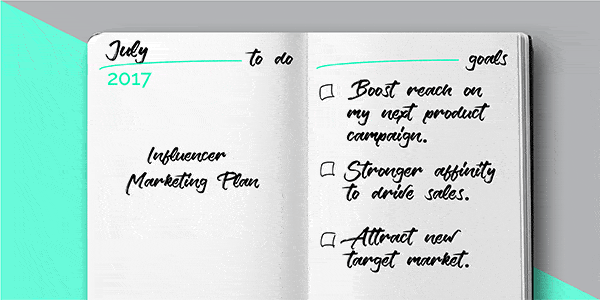 July
2017
to do
Influencer
Marketing Plan
goals
Boost reach on
my next product
campaign.
Stronger affinity
to drive sales.
Attract new
target market.